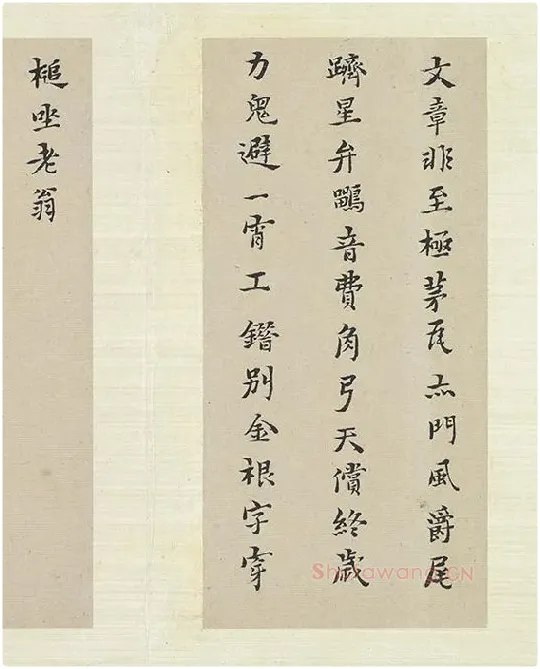 文章非至極茅瓦亦門風爵尾
躋星弁音費角弓天償終歲
力鬼避一宵工鐕别金根字穿
槌坐老翁
Shufawang.CN